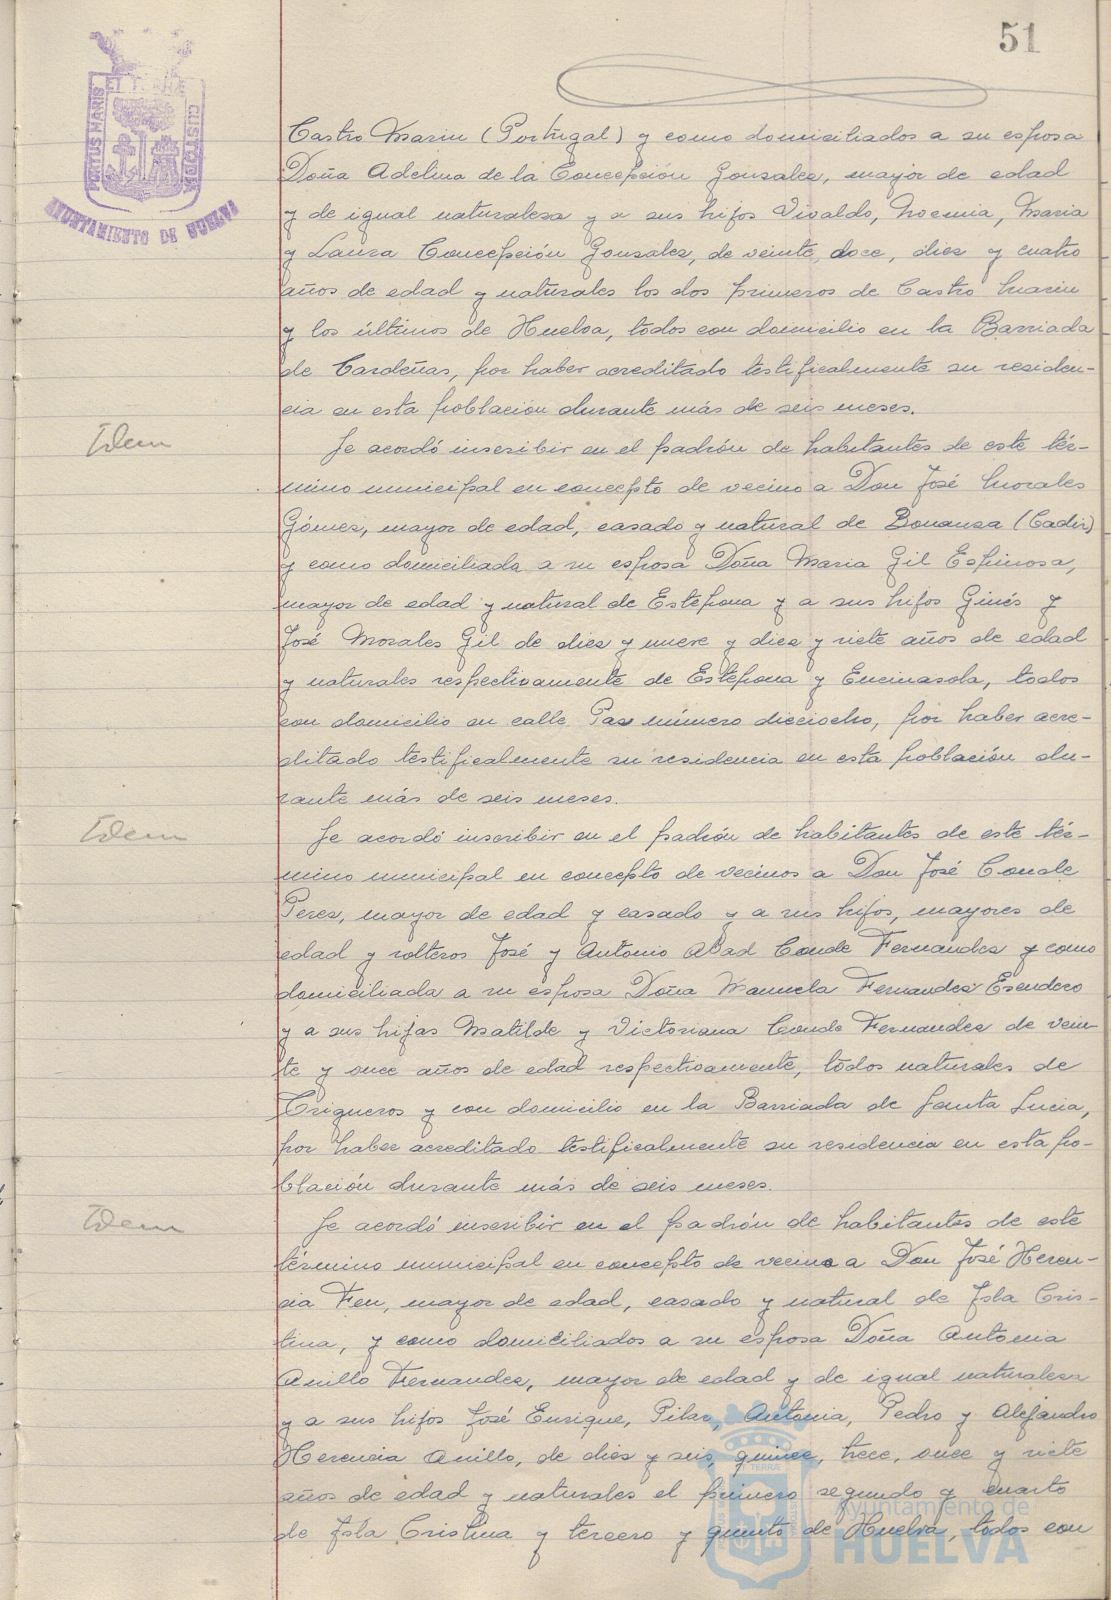 51
PORTUS MARIS ET TERRAE CUSTODIA
AYUNTAMIENTO DE HUELVA
Castro Marin (Portugal) y como domiciliados a su esposa
Doña Adelina de la Concepción Gonzalez, mayor de edad
y de igual naturaleza y a sus hijos Vivaldo, Noemia, Maria
y Laura Concepción Gonzalez, de veinte, doce, diez y cuatro
años de edad y naturales los dos primeros de Castro Marin
y los últimos de Huelva, todos con domicilio en la Barriada
de Cardeñas, por haber acreditado testificalmente su residen-
cia en esta población durante más de seis meses.
Idem
Se acordó inscribir en el padrón de habitantes de este tér-
mino municipal en concepto de vecino a Don José Morales
Gómez, mayor de edad, casado y natural de Bonanza (Cadiz)
y como domiciliada a su esposa Doña Maria Gil Espinosa,
mayor de edad y natural de Estepona y a sus hijos Ginés y
José Morales Gil de diez y nueve y diez y siete años de edad
y naturales respectivamente de Estepona y Encinasola, todos
con domicilio en calle Paz número dieciocho, por haber acre-
ditado testificalmente su residencia en esta población du-
rante más de seis meses.
Idem
Se acordó inscribir en el padrón de habitantes de este tér-
mino municipal en concepto de vecinos a Don José Conde
Perez, mayor de edad y casado y a sus hijos, mayores de
edad y solteros José y Antonio Abad Conde Fernandez y como
domiciliada a su esposa Doña Manuela Fernandez Escudero
y a sus hijas Matilde y Victoriana Conde Fernandez de vein-
te y once años de edad respectivamente, todos naturales de
Trigueros y con domicilio en la Barriada de Santa Lucia,
por haber acreditado testificalmente su residencia en esta po-
blación durante más de seis meses.
Idem
Se acordó inscribir en el padrón de habitantes de este
término municipal en concepto de vecino a Don José Heren-
cia Feu, mayor de edad, casado y natural de Isla Cris-
tina, y como domiciliados a su esposa Doña Antonia
Anillo Fernandez, mayor de edad y de igual naturaleza
y a sus hijos José Enrique, Pilar, Antonia, Pedro y Alejandro
Herencia Anillo, de diez y seis, quince, trece, once y siete
años de edad y naturales el primero segundo y cuarto
de Isla Cristina y tercero y quinto de Huelva, todos con
Ayuntamiento de
HUELVA